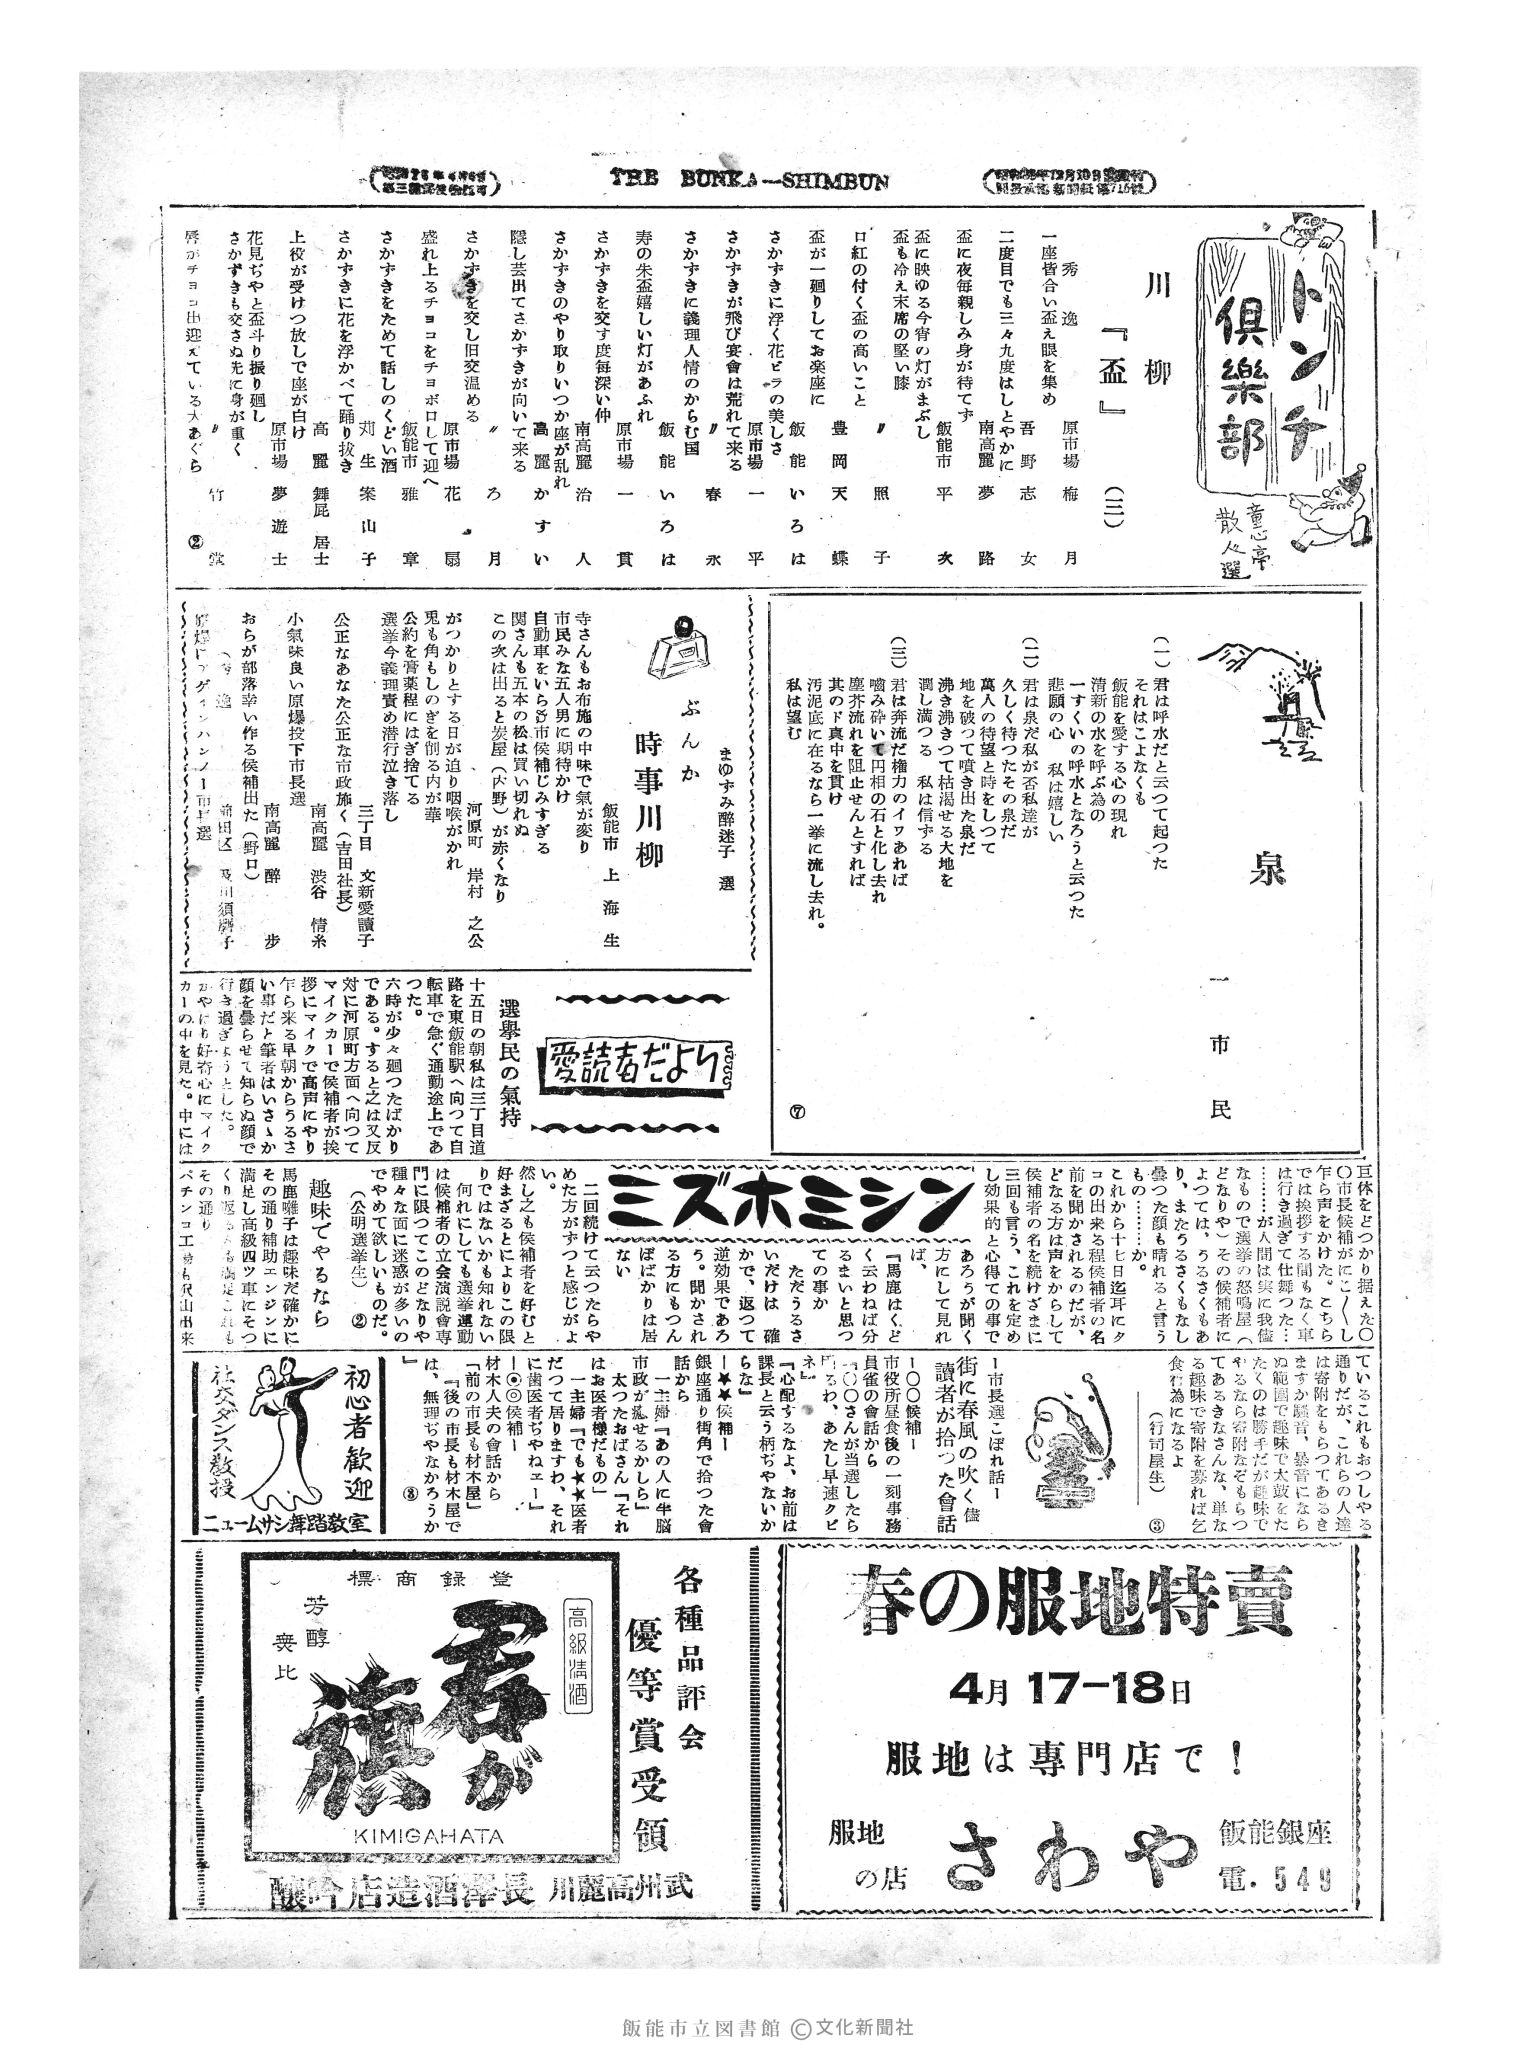 THE BUNKA—SHIMBUN
トンチ
俱樂部
童心亭
散人選
川柳
『盃』(三)
秀逸
一座皆合い盃え眼を集め
原市場 梅月
二度目でも三々九度はしとやかに
吾野 志女
盃に夜每親しみ身が待てず
南高麗 夢路
盃に映ゆる今宵の灯がまぶし
飯能市 平次
盃も冷え末席の堅い膝
〃 照子
口紅の付く盃の高いこと
豊岡 天蝶
盃が一廻りしてお楽座に
飯能 いろは
さかずきに浮く花ビラの美しさ
原市場 一平
さかずきが飛び宴會は荒れて来る
〃 春永
さかずきに義理人情のからむ国
飯能 いろは
寿の朱盃嬉しい灯があふれ
原市場 一貫
さかずきを交す度每深い仲
南高麗 治人
さかずきのやり取りいつか座が乱れ
高麗 かすい
隠し芸出てさかずきが向いて来る
〃 ろ月
さかずきを交し旧交温める
原市場 花扇
盛れ上るチョコをチョボロして迎へ
飯能市 雅章
さかずきをためて話しのくどい酒
苅生 案山子
さかずきに花を浮かべて踊り抜き
高麗 舞屁居士
上役が受けつ放しで座が白け
原市場 夢遊士
花見ぢやと盃斗り振り廻し
さかずきも交さぬ先に身が重く
〃 竹堂
唇がチョコ出迎えている大あぐら
②
泉
一市民
(一)
君は呼水だと云つて起つた
それはこよなくも
飯能を愛する心の現れ
清新の水を呼ぶ為の
一すくいの呼水となろうと云つた
悲願の心 私は嬉しい
(二)
君は泉だ私が否私達が
久しく待つたその泉だ
萬人の待望と時をしつて
地を破って噴き出た泉だ
沸き沸きつて枯渇せる大地を
潤し満つる 私は信ずる
(三)
君は奔流だ権力のイワあれば
噛み砕いて円相の石と化し去れ
塵芥流れを阻止せんとすれば
其のド真中を貫け
汚泥底に在るなら一挙に流し去れ。
私は望む
⑦
ぶんか
時事川柳
まゆずみ醉迷子 選
寺さんもお布施の中味で氣が変り
飯能市 上海生
市民みな五人男に期待かけ
自動車をいらぬ市侯補じみすぎる
関さんも五本の松は買い切れぬ
この次は出ると炭屋(内野)が赤くなり
河原町 岸村之公
がつかりとする日が迫り咽喉がかれ
兎も角もしのぎを削る内が華
公約を膏薬程にはぎ捨てる
選挙今義理責め潜行泣き落し
三丁目 文新愛讀子
公正なあなた公正な市政施く(吉田社長)
南高麗 渋谷情糸
小氣味良い原爆投下市長選
南高麗 醉步
おらが部落幸い作る侯補出た(野口)
愛読者だより
選擧民の氣持
十五日の朝私は三丁目道
路を東飯能駅へ向つて自
転車で急ぐ通勤途上であ
つた。
六時が少々廻つたばかり
である。すると之は又反
対に河原町方面へ向つて
マイクカーで侯補者が挨
拶にマイクで高声にやり
乍ら来る早朝からうるさ
い事だと筆者はいさゝか
顔を曇らせて知らぬ顔で
行き過ぎようとした。
がやはり好奇心にマイク
カーの中を見た。中には
巨体をどつかり据えた〇
〇市長候補がにこ〳〵し
乍ら声をかけた。こちら
では挨拶する間もなく車
は行き過ぎて仕舞つた…
………が人間は実に我儘
なもので選挙の怒鳴屋(
どなりや)その侯補者に
よつては、うるさくもあ
り、またうるさくもなし
曇つた顔も晴れると言う
もの………か。
これから十七日迄耳にタ
コの出来る程侯補者の名
前を聞かされるのだが、
どなる方は声をからして
侯補者の名を続けざまに
三回も言う、これを定め
し効果的と心得ての事で
あろうが聞く
方にして見れ
ば、
『馬鹿はくど
く云わねば分
るまいと思つ
ての事か
ただうるさ
いだけは 確
かで、返つて
逆効果であろ
う。聞かされ
る方にもつん
ぼばかりは居
ない
二回続けて云つたらや
めた方がずつと感じがよ
い。
然し之も侯補者を好むと
好まざるとによりこの限
りではないかも知れない
何れにしても選挙運動
は侯補者の立会演説會専
門に限つてこのどなりや
種々な面に迷惑が多いの
でやめて欲しいものだ。
(公明選挙生) ②
ミズホミシン
趣味でやるなら
馬鹿囃子は趣味だ確かに
その通り補助エンジンに
満足し高級四ツ車にそつ
その通り
ているこれもおつしやる
通りだが、これらの人達
は寄附をもらつてあるき
ますか騒音、暴音になら
ぬ範囲で趣味で太鼓をた
たくのは勝手だが趣味で
やるなら寄附なぞもらつ
てあるきなさんな、単な
る趣味で寄附を募れば乞
食行為になるよ
(行司屋生) ③
ー市長選こぼれ話ー
街に春風の吹く儘
讀者が拾つた會話
ー〇〇侯補ー
市役所昼食後の一刻事務
員雀の會話から
『〇〇さんが当選したら
わ、あたし早速クビ
ネ』
『心配するなよ、お前は
課長と云う柄ぢやないか
らな』
ー★★侯補ー
銀座通り街角で拾つた會
話から
一主婦『あの人に半脳
市政が施せるかしら』
太つたおばさん『それ
はお医者様だもの』
一主婦『でも★★医者
だつて居りますわ、それ
に歯医者ぢやねェー』
ー◎◎侯補ー
材木人夫の會話から
『前の市長も材木屋』
『後の市長も材木屋で
は、無理ぢやなかろうか
』 ③
初心者歓迎
社交ダンス教授
ニュームサシ舞踏教室
各種品評会
優等賞受領
登録商標
高級清酒
芳醇
無比
君が旗
KIMIGAHATA
武州高麗川 長澤酒造店吟釀
春の服地特賣
4月 17―18日
服地は専門店で！
服地の店
さわや
飯能銀座
電．549
飯能市立図書館 ©文化新聞社